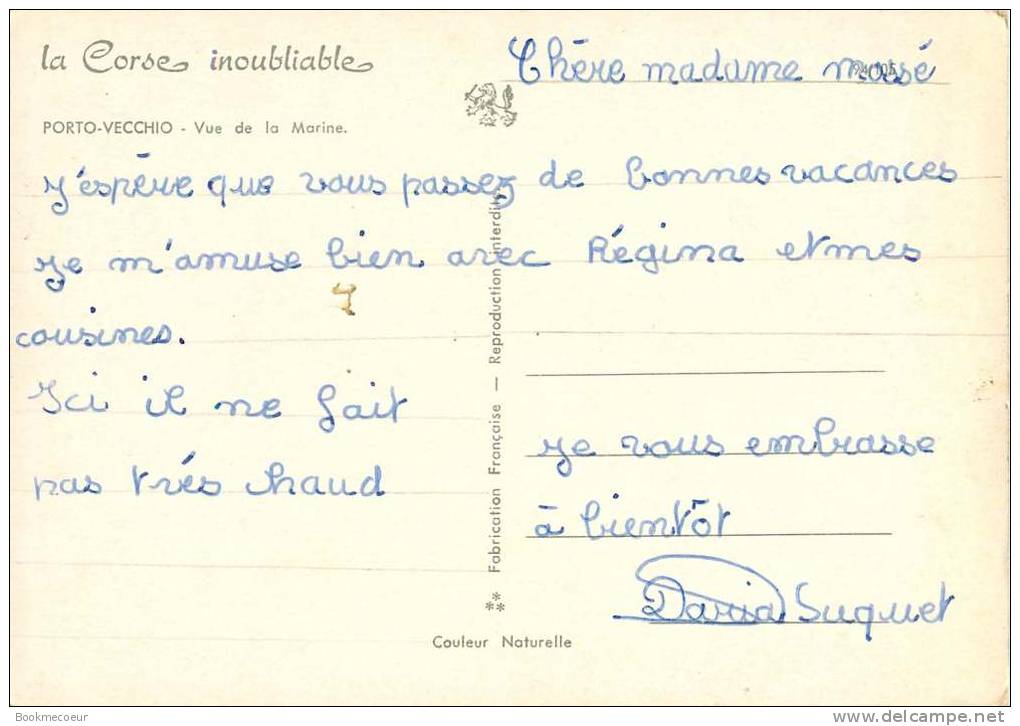 la Corse inoubliable
PORTO-VECCHIO - Vue de la Marine.
Chère madame mosé
J'éspère que vous passez de bonnes vacances
je m'amuse bien avec Régina et mes
cousines.
Ici il ne fait
pas trés chaud
je vous embrasse
à bientôt
Daria Suquet
Fabrication Française — Reproduction interdite
Couleur Naturelle
Bookmecoeur
www.delcampe.net